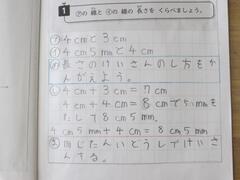 1 ㋐の 線と ㋑の 線の 長さを くらべましょう。
㋐ 4cmと3cm
㋑ 4cm5mmと4cm
長さのけいさんのし方をか
んがえよう。
4cm+3cm=7cm
4cm+4cm=8cmで5mmを
たして8cm5mm。
4cm5mm+4cm=8cm5mm
同じたんいどうしでけいさ
んする。